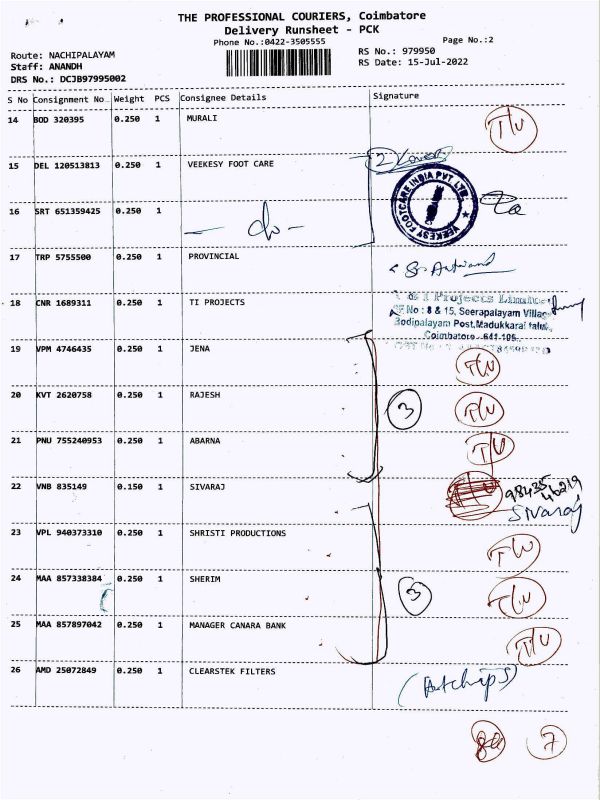 THE PROFESSIONAL COURIERS, Coimbatore
Delivery Runsheet - PCK
Phone No.:0422-3505555
Page No.:2
Route: NACHIPALAYAM
RS No.: 979950
Staff: ANANDH
RS Date: 15-Jul-2022
DRS No.: DCJB97995002
S No Consignment No Weight PCS Consignee Details Signature
14 BOD 320395 0.250 1 MURALI
15 DEL 120513813 0.250 1 VEEKESY FOOT CARE
2
VEEKESY FOOTCARE INDIA PVT. LTD.
16 SRT 651359425 0.250 1 - do -
17 TRP 5755500 0.250 1 PROVINCIAL
18 CNR 1689311 0.250 1 TI PROJECTS
I Projects Limited
SF.No : 8 & 15, Seerapalayam Village
Bodipalayam Post, Madukkarai taluk,
Coimbatore - 641 105.
19 VPM 4746435 0.250 1 JENA
20 KVT 2620758 0.250 1 RAJESH
3
21 PNU 755240953 0.250 1 ABARNA
22 VNB 835149 0.150 1 SIVARAJ
98435
46219
Sivaraj
23 VPL 940373310 0.250 1 SHRISTI PRODUCTIONS
24 MAA 857338384 0.250 1 SHERIM
3
25 MAA 857897042 0.250 1 MANAGER CANARA BANK
26 AMD 25072849 0.250 1 CLEARSTEK FILTERS
7